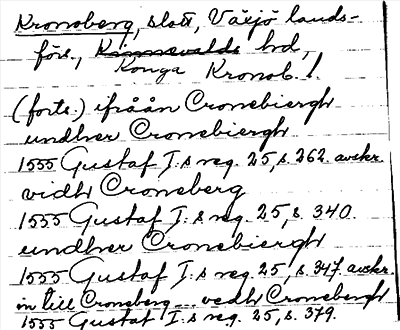 Kronoberg, slott, Växjö lands-
förs., Kinnevalds hd,
Konga Kronob. l.
(forts.) ifråån Cronebiergh
undher Cronebiergh
1555 Gustaf I:s reg. 25, s. 262. avskr.
vidh Croneberg
1555 Gustaf I:s reg. 25, s. 340.
undher Cronebiergh
1555 Gustaf I:s reg. 25, s. 347. avskr.
in till Cronsberg ... vedh Cronebergh
1555 Gustaf I:s reg. 25, s. 379.